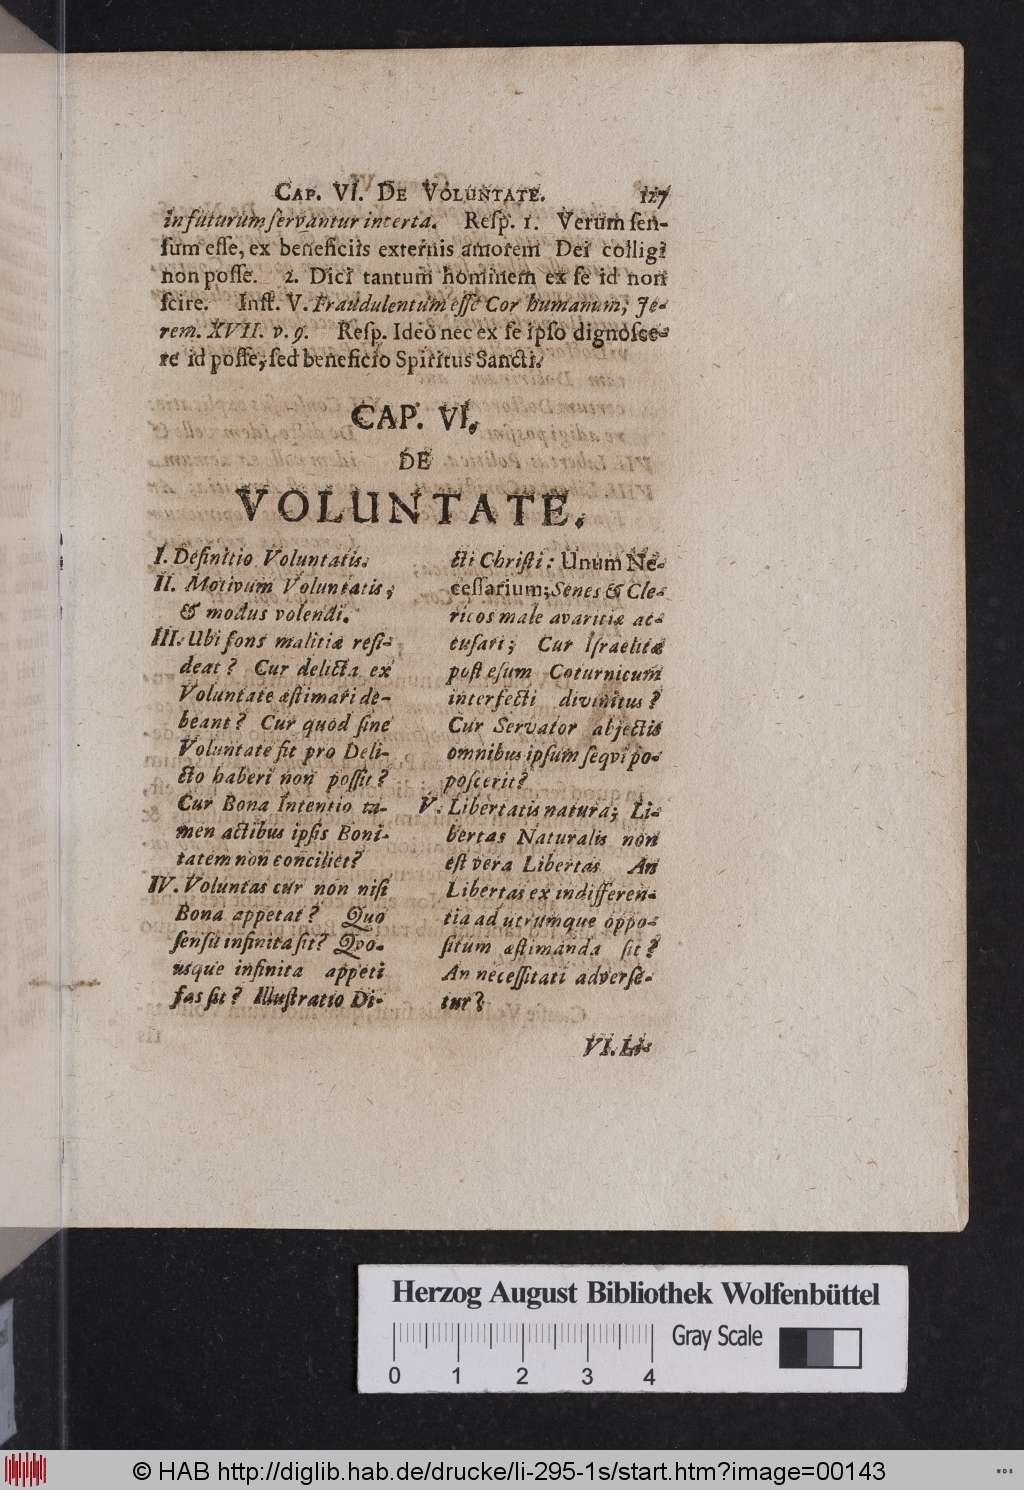 CAP. VI. DE VOLUNTATE. 127
in futurum servantur incerta. Resp. 1. Verum sen-
sum esse, ex beneficiis externis amorem Dei colligi
non posse. 2. Dici tantum hominem ex se id non
scire. Inst. V. Fraudulentum esse Cor humanum; Je-
rem. XVII. v. 9. Resp. Ideo nec ex se ipso dignosce-
re id posse, sed beneficio Spiritus Sancti.
CAP. VI.
DE
VOLUNTATE.
I. Definitio Voluntatis.
II. Motivum Voluntatis;
& modus volendi.
III. Ubi fons malitiæ resi-
deat? Cur delicta ex
Voluntate æstimari de-
beant? Cur quod sine
Voluntate fit pro Deli-
cto haberi non possit?
Cur Bona Intentio ta-
men actibus ipsis Boni-
tatem non conciliet?
IV. Voluntas cur non nisi
Bona appetat? Quo
sensu infinita sit? Qvo-
usque infinita appeti
fas sit? Illustratio Di-
cti Christi: Unum Ne-
cessarium; Senes & Cle-
ricos male avaritiæ ac-
cusari; Cur Israelitæ
post esum Coturnicum
interfecti divinitus?
Cur Servator abjectis
omnibus ipsum seqvi po-
poscerit?
V. Libertatis natura; Li-
bertas Naturalis non
est vera Libertas. An
Libertas ex indifferen-
tia ad utrumque oppo-
situm æstimanda sit?
An necessitati adverse-
tur?
VI. Li-
Herzog August Bibliothek Wolfenbüttel
Gray Scale
0 1 2 3 4
© HAB http://diglib.hab.de/drucke/li-295-1s/start.htm?image=00143